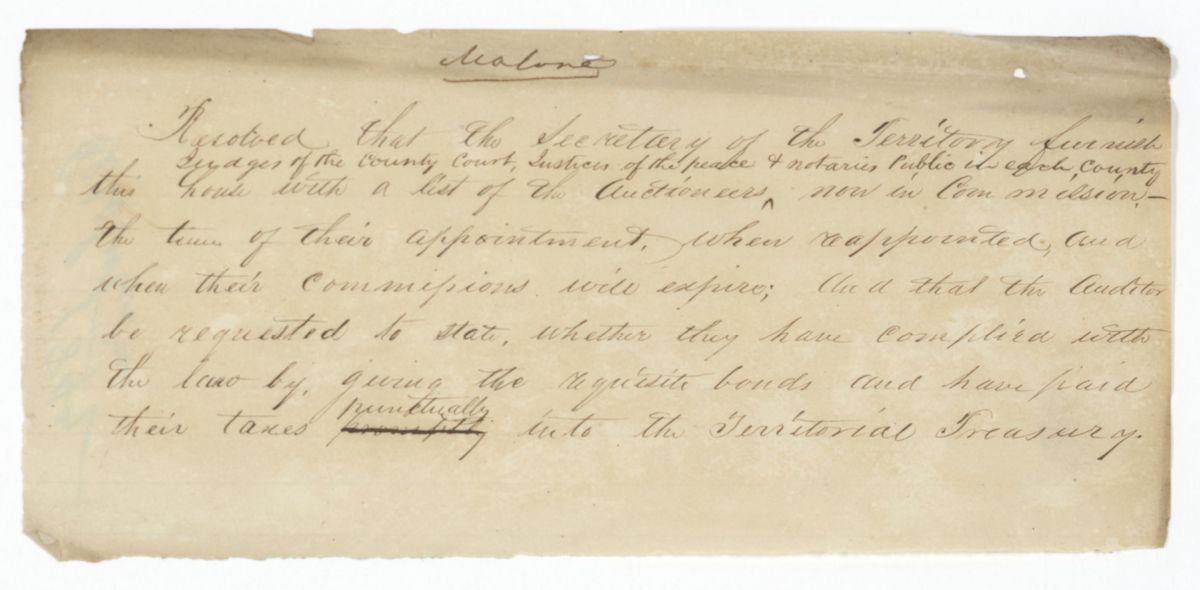 Malone
Resolved that the Secretary of the Territory furnish
Judges of the County Court, Justices of the peace & notaries Public in each County
this house with a list of the Auctioneers ‸ now in Commission,—
the time of their appointment, when reappointed, and
when their commissions will expire; And that the Auditor
be requested to state, whether they have complied with
the law by, giving the requisite bonds and have paid
punctually
their taxes promptly into the Territorial Treasury.